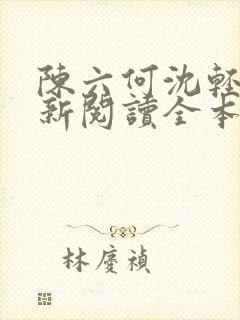 陳六何沈輕
新閱讀全本
林慶禎